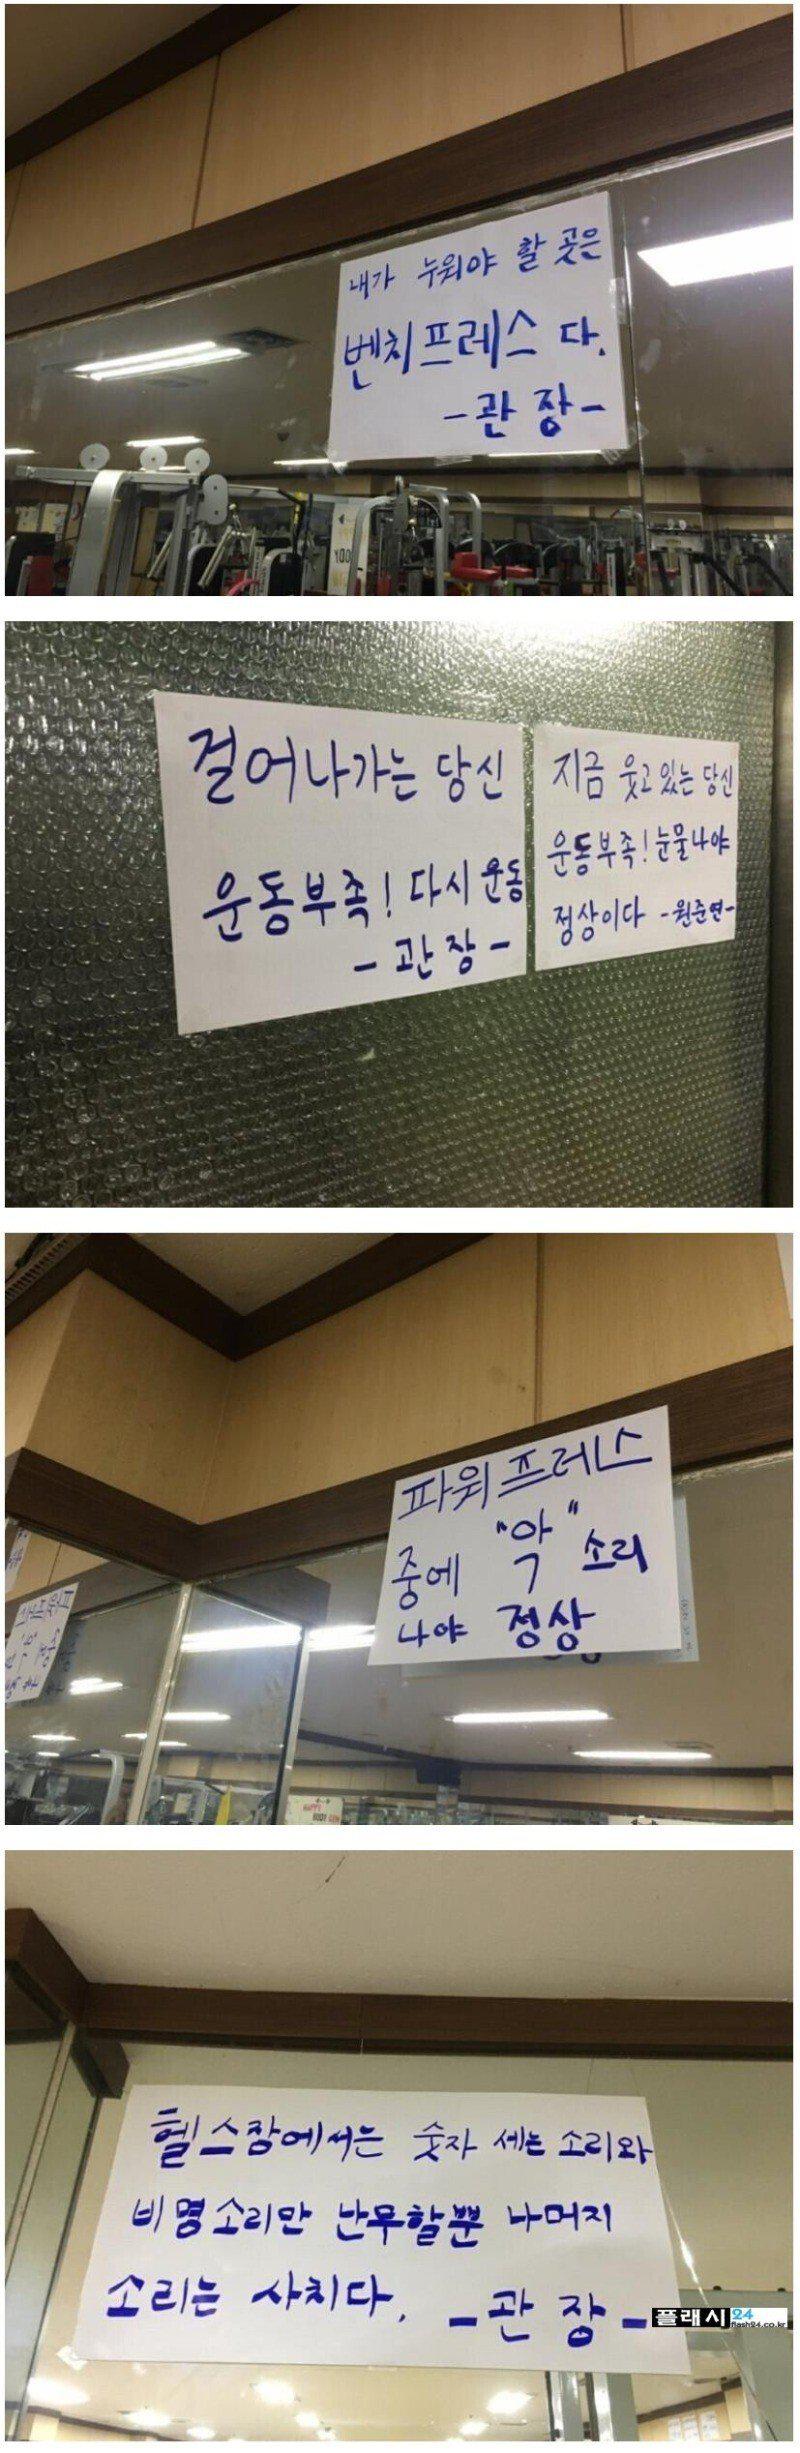 내가 누워야 할 곳은
벤치프레스 다.
-관 장-
YOO
걸어나가는 당신
운동부족! 다시 운동
- 관 장 -
지금 웃고 있는 당신
운동부족! 눈물나야
정상이다 -원준연-
파워프레스
중에 "악" 소리
나야 정상
HAPPY
BODY GYM
헬스장에서는 숫자 세는 소리와
비명소리만 난무할뿐 나머지
소리는 사치다.
- 관 장 -
플래시24
flash24.co.kr